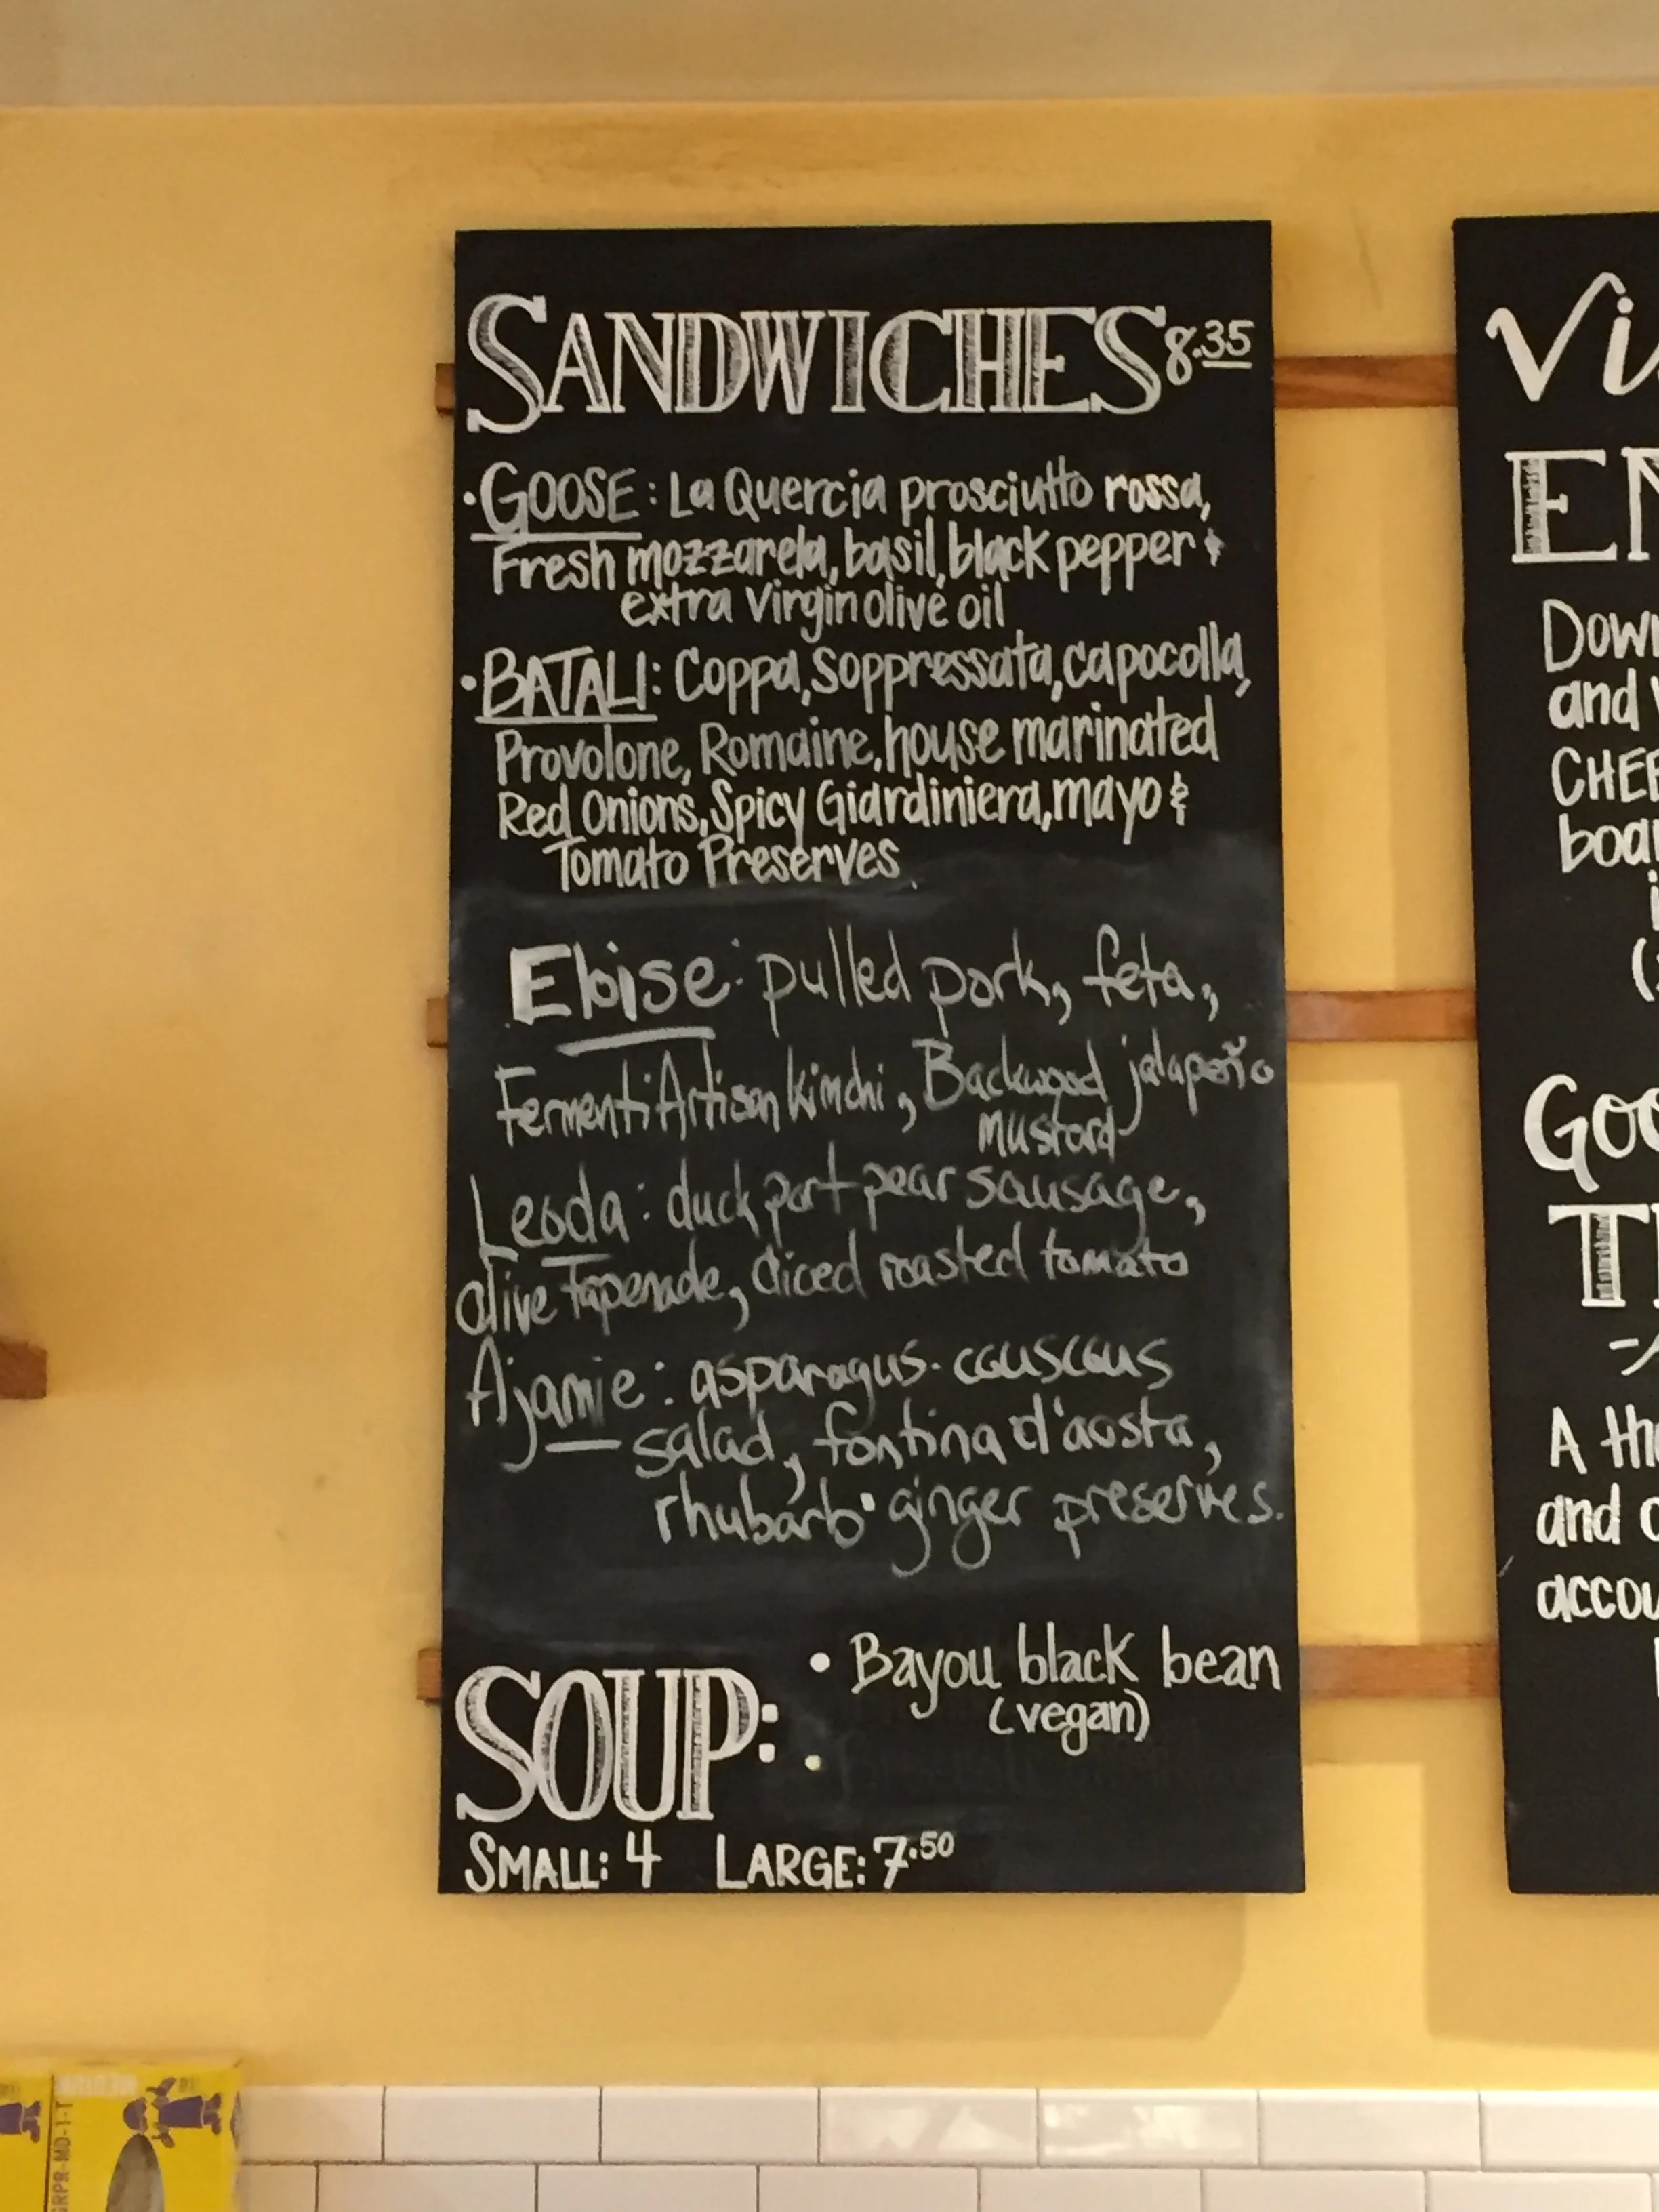 SANDWICHES 8.35
• GOOSE: La Quercia prosciutto rossa,
Fresh mozzarela, basil, black pepper &
extra Virgin olive oil
• BATALI: Coppa, Soppressata, capocolla,
Provolone, Romaine, house marinated
Red Onions, Spicy Giardiniera, mayo &
Tomato Preserves
Eloise: pulled pork, feta,
Fermenti Artisan kimchi, Backwood jalapeño
mustard
Leoda: duck port pear sausage,
olive Tapenade, diced roasted tomato
Ajamie: asparagus-couscous
salad, fontina d'aosta,
rhubarb-ginger preserves.
SOUP:
• Bayou black bean
(vegan)
•
SMALL: 4 LARGE: 7.50
Vi
EN
Down
and
CHEE
boar
Goo
A the
and
accou
GRPR-MD-1-T